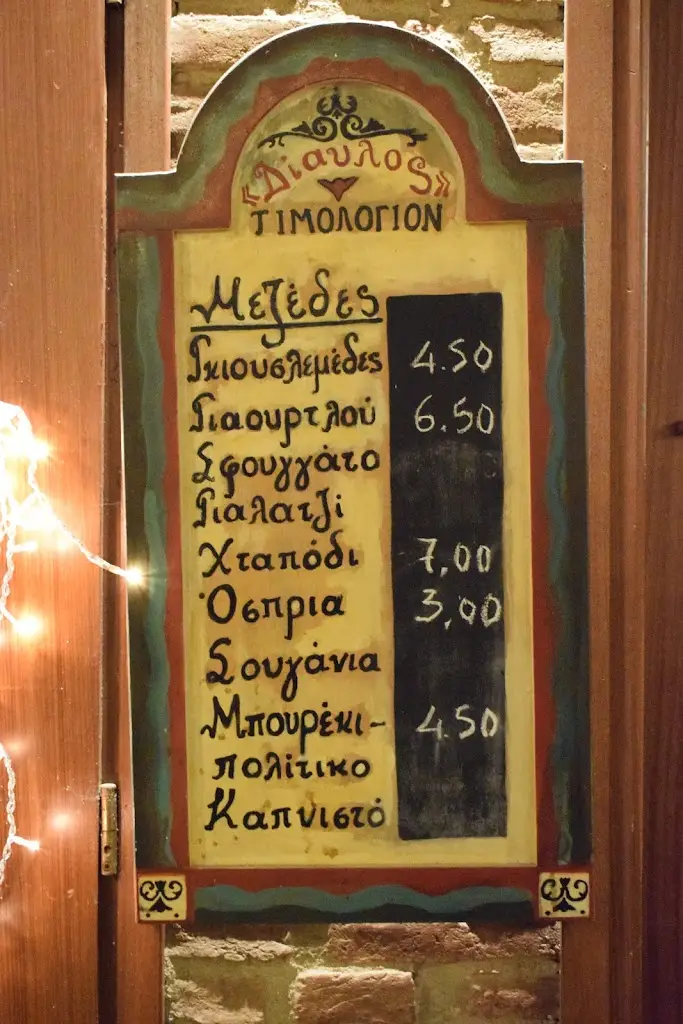 «Δίαυλος»
ΤΙΜΟΛΟΓΙΟΝ
Μεζέδες
Γκιουσλεμέδες 4.50
Γιαουρτλού 6.50
Σφουγγάτο
Γιαλατζί
Χταπόδι 7,00
Όσπρια 3,00
Σουγάνια
Μπουρέκι- 4.50
πολίτικο
Καπνιστό